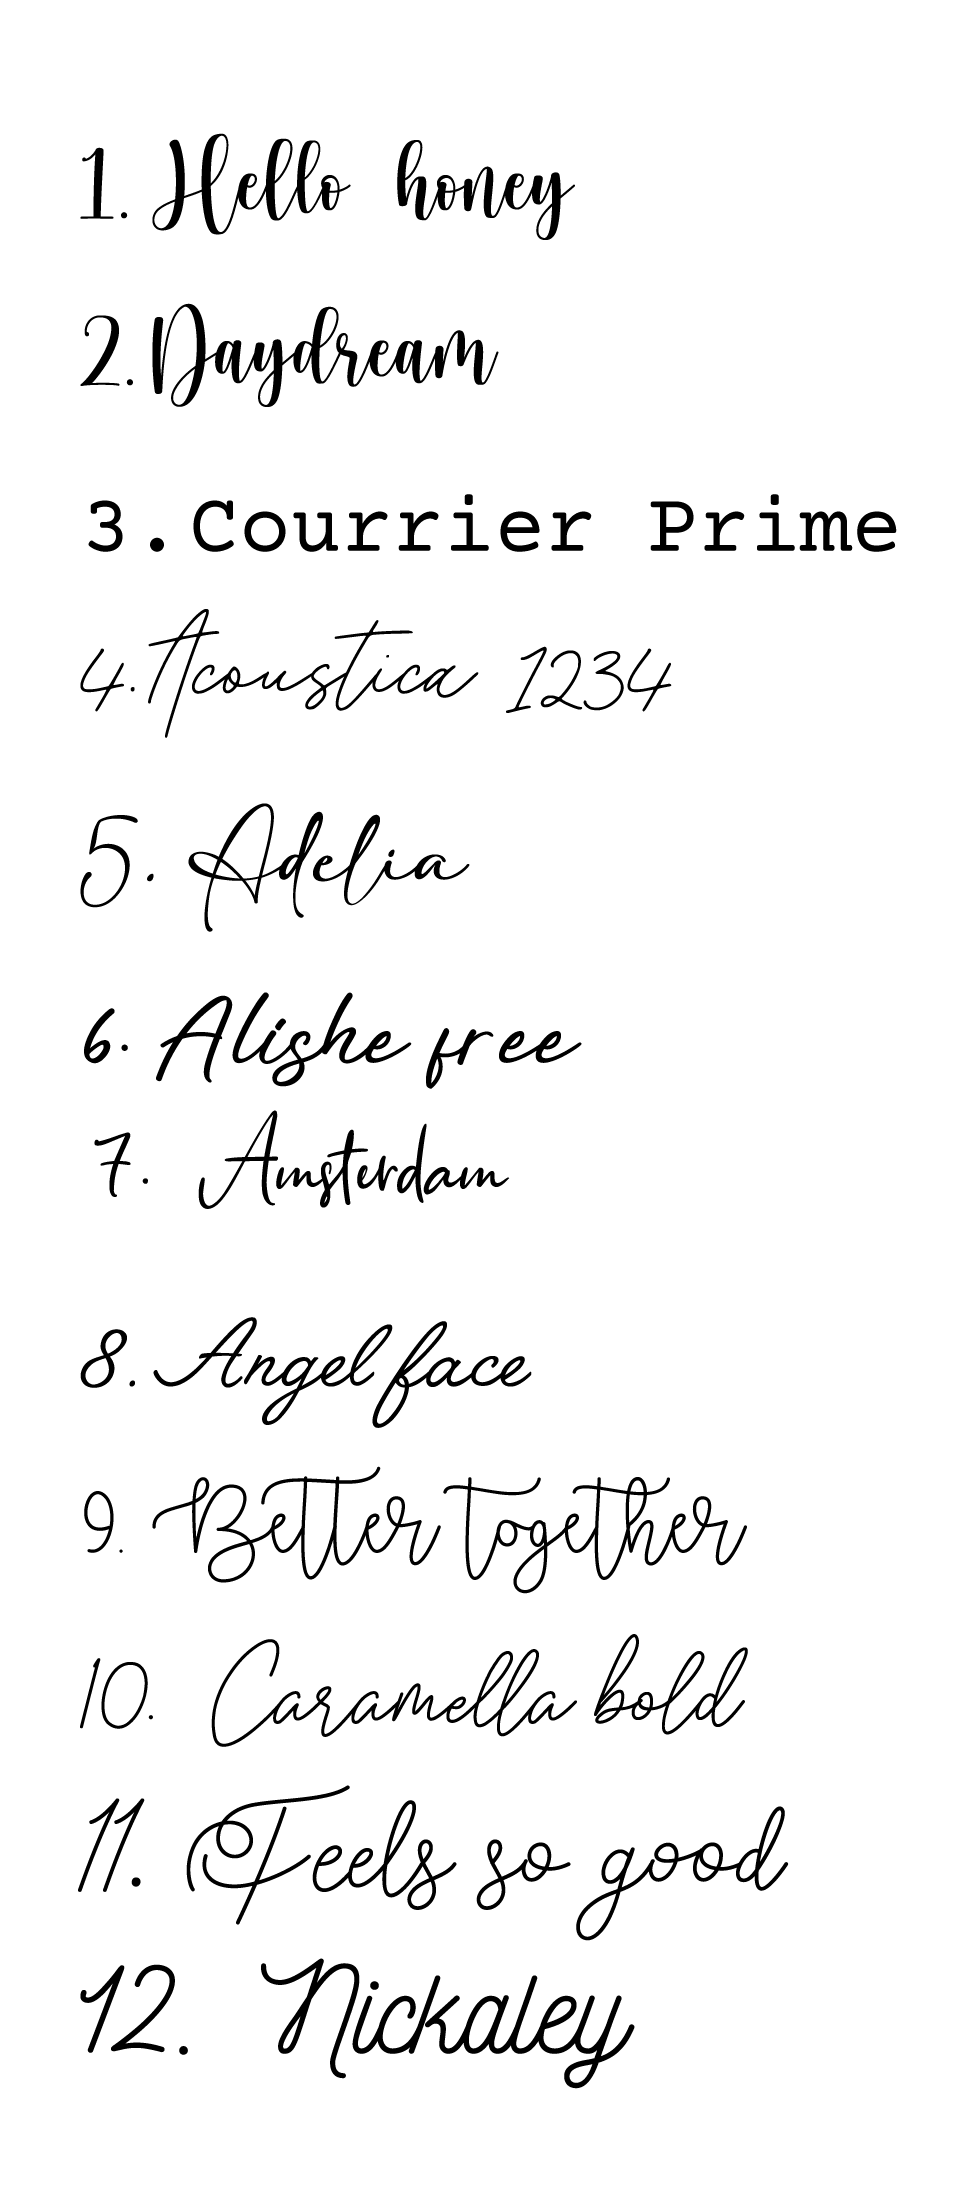 1. Hello honey
2. Daydream
3. Courrier Prime
4. Acoustica 1234
5. Adelia
6. Alishe free
7. Amsterdam
8. Angel face
9. Better together
10. Caramella bold
11. Feels so good
12. Nickaley